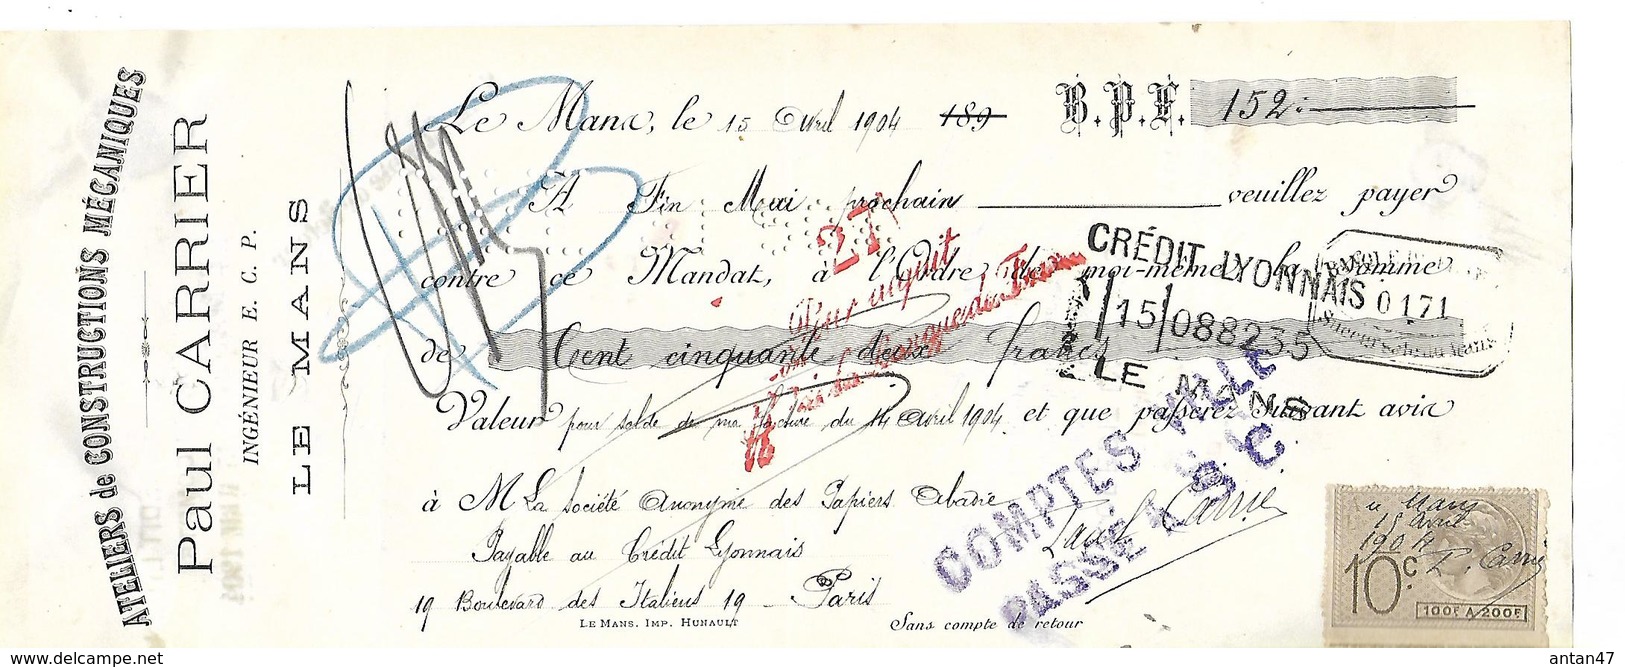 ATELIERS de CONSTRUCTIONS MÉCANIQUES
Paul CARRIER
INGÉNIEUR E. C. P.
LE MANS
Le Mans, le 15 Avril 1904 189 B.P.F. 152:
A Fin Mai prochain veuillez payer
contre ce Mandat, à l'Ordre de moi-même la somme
de Cent cinquante deux francs
Valeur pour solde de ma facture du 14 Avril 1904 et que passerez suivant avis
à M La Société Anonyme des Papiers Abadie
Payable au Crédit Lyonnais
19 Boulevard des Italiens 19 - Paris
LE MANS. IMP. HUNAULT
Sans compte de retour
Paul Carrier
27
Pour acquit
CRÉDIT LYONNAIS
15 088235
LE MANS
0171
COMPTES VILLE
PASSÉ A S C
Le Mans
15 Avril
1904
P. Carrier
10 C.
100F A 200F
delcampe.net
antan47